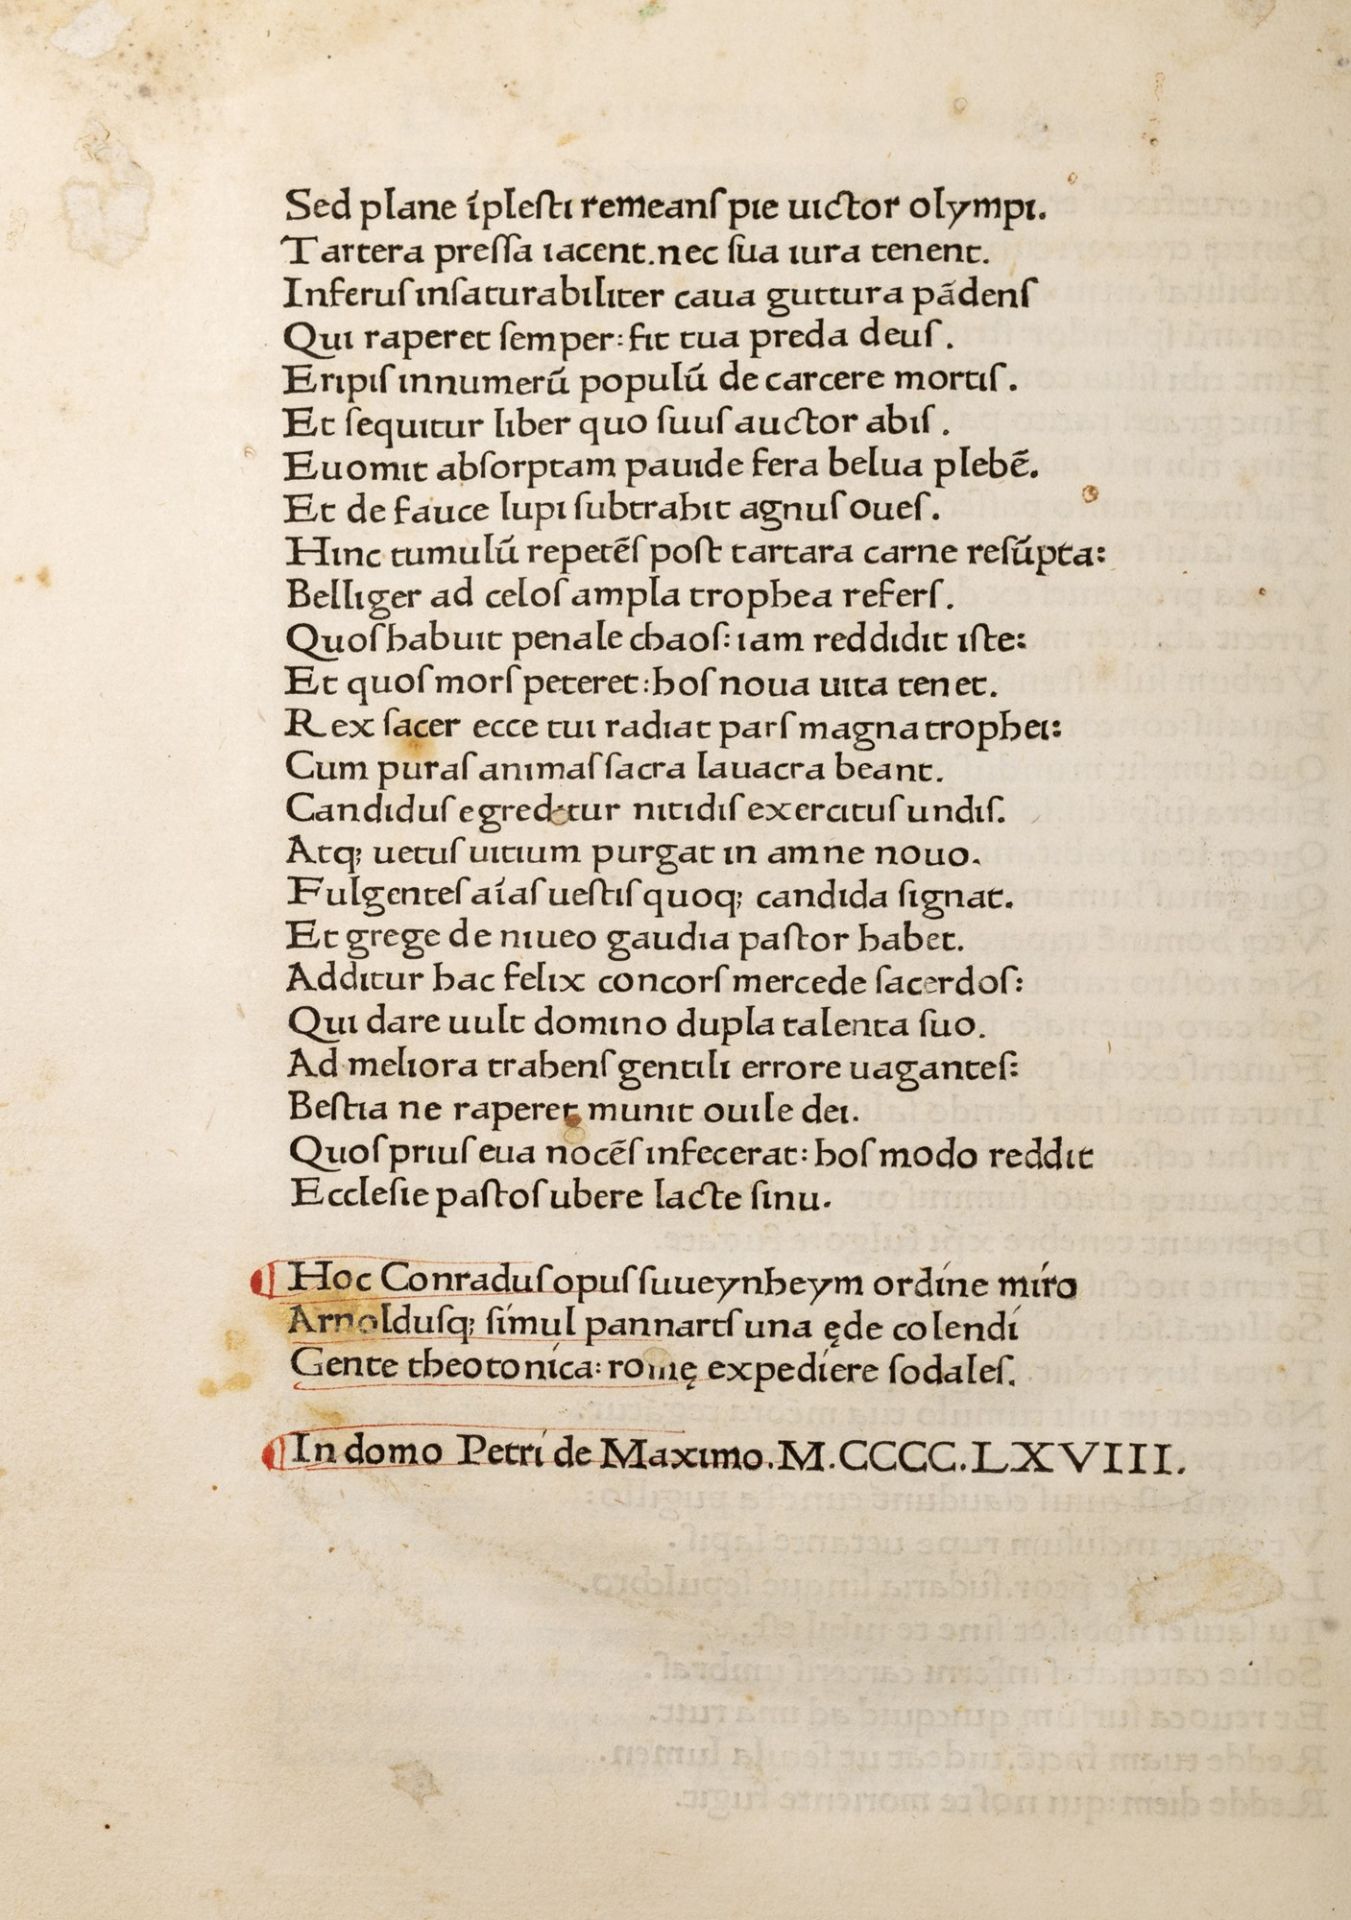 Sed plane īpleſti remeanſ pie uictor olympi.
Tartera preſſa iacent. nec ſua iura tenent.
Inferuſ inſaturabiliter caua guttura pādenſ
Qui raperet ſemper: fit tua preda deuſ.
Eripiſ innumerū populū de carcere mortiſ.
Et ſequitur liber quo ſuuſ auctor abiſ.
Euomit abſorptam pauide fera belua plebē.
Et de fauce lupi ſubtrahit agnuſ oueſ.
Hinc tumulū repetēſ poſt tartara carne reſūpta:
Belliger ad celoſ ampla trophea referſ.
Quoſ habuit penale chaoſ: iam reddidit iſte:
Et quoſ morſ peteret: hoſ noua uita tenet.
Rex ſacer ecce tui radiat parſ magna trophei:
Cum puraſ animaſ ſacra lauacra beant.
Candiduſ egreditur nitidiſ exercituſ undiſ.
Atq; uetuſ uitium purgat in amne nouo.
Fulgenteſ aīaſ ueſtiſ quoq; candida ſignat.
Et grege de niueo gaudia paſtor habet.
Additur hac felix concorſ mercede ſacerdoſ:
Qui dare uult domino dupla talenta ſuo.
Ad meliora trahenſ gentili errore uaganteſ:
Beſtia ne raperet munit ouile dei.
Quoſ priuſ eua nocēſ infecerat: hoſ modo reddit
Eccleſie paſtoſ ubere lacte ſinu.
¶ Hoc Conraduſ opuſ ſuueynheym ordine miro
Arnolduſq; ſimul pannartſ una ęde colendi
Gente theotonica: romę expediere ſodaleſ.
¶ In domo Petri de Maximo. M.CCCC.LXVIII.